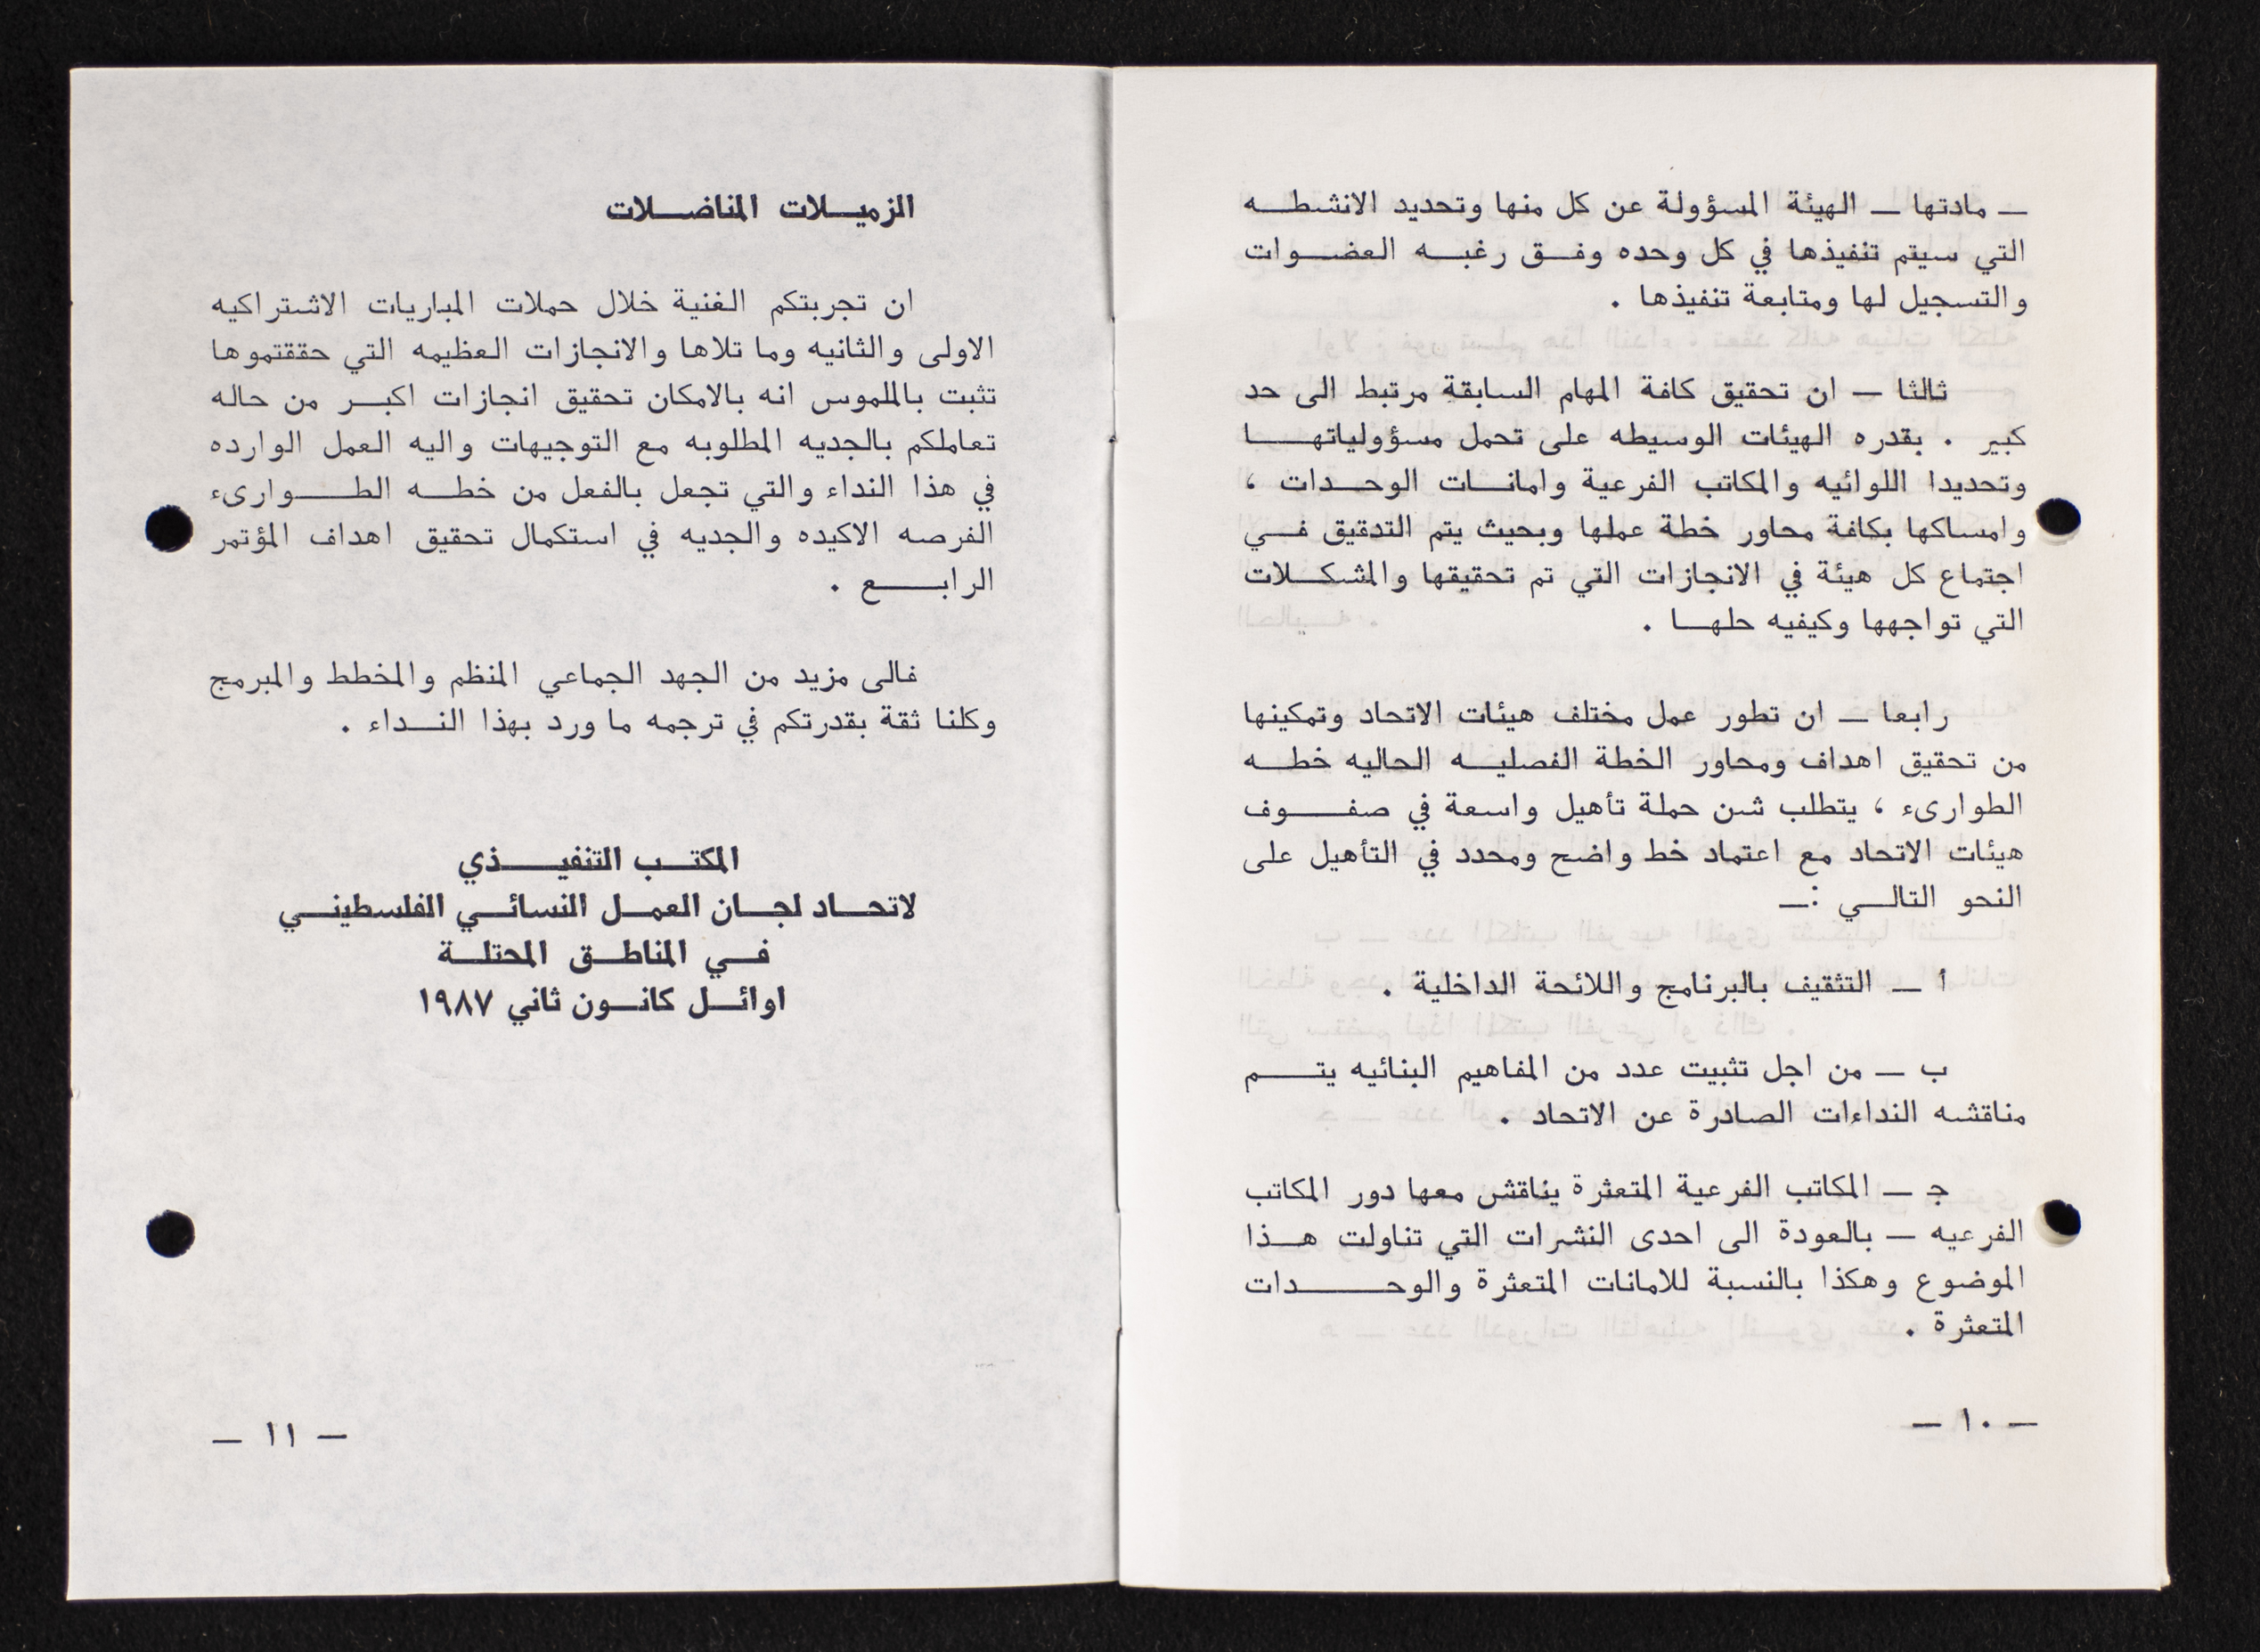 ـ مادتها ـ الهيئة المسؤولة عن كل منها وتحديد الانشطه
التي سيتم تنفيذها في كل وحده وفق رغبه العضوات
والتسجيل لها ومتابعة تنفيذها .
ثالثا ـ ان تحقيق كافة المهام السابقة مرتبط الى حد
كبير . بقدره الهيئات الوسيطه على تحمل مسؤولياتها
وتحديدا اللوائيه والمكاتب الفرعية وامانات الوحدات ،
وامساكها بكافة محاور خطة عملها وبحيث يتم التدقيق في
اجتماع كل هيئة في الانجازات التي تم تحقيقها والمشكلات
التي تواجهها وكيفيه حلها .
رابعا ـ ان تطور عمل مختلف هيئات الاتحاد وتمكينها
من تحقيق اهداف ومحاور الخطة الفصليه الحاليه خطه
الطوارىء ، يتطلب شن حملة تأهيل واسعة في صفوف
هيئات الاتحاد مع اعتماد خط واضح ومحدد في التأهيل على
النحو التالي :ـ
أ ـ التثقيف بالبرنامج واللائحة الداخلية .
ب ـ من اجل تثبيت عدد من المفاهيم البنائيه يتم
مناقشه النداءات الصادرة عن الاتحاد .
جـ ـ المكاتب الفرعية المتعثرة يناقش معها دور المكاتب
الفرعيه ـ بالعودة الى احدى النشرات التي تناولت هذا
الموضوع وهكذا بالنسبة للامانات المتعثرة والوحدات
المتعثرة .
ـ ١٠ ـ
الزميلات المناضلات
ان تجربتكم الغنية خلال حملات المباريات الاشتراكيه
الاولى والثانيه وما تلاها والانجازات العظيمه التي حققتموها
تثبت بالملموس انه بالامكان تحقيق انجازات اكبر من حاله
تعاملكم بالجديه المطلوبه مع التوجيهات واليه العمل الوارده
في هذا النداء والتي تجعل بالفعل من خطه الطوارىء
الفرصه الاكيده والجديه في استكمال تحقيق اهداف المؤتمر
الرابع .
فالى مزيد من الجهد الجماعي المنظم والمخطط والمبرمج
وكلنا ثقة بقدرتكم في ترجمه ما ورد بهذا النداء .
المكتب التنفيذي
لاتحاد لجان العمل النسائي الفلسطيني
في المناطق المحتلة
اوائل كانون ثاني ١٩٨٧
ـ ١١ ـ